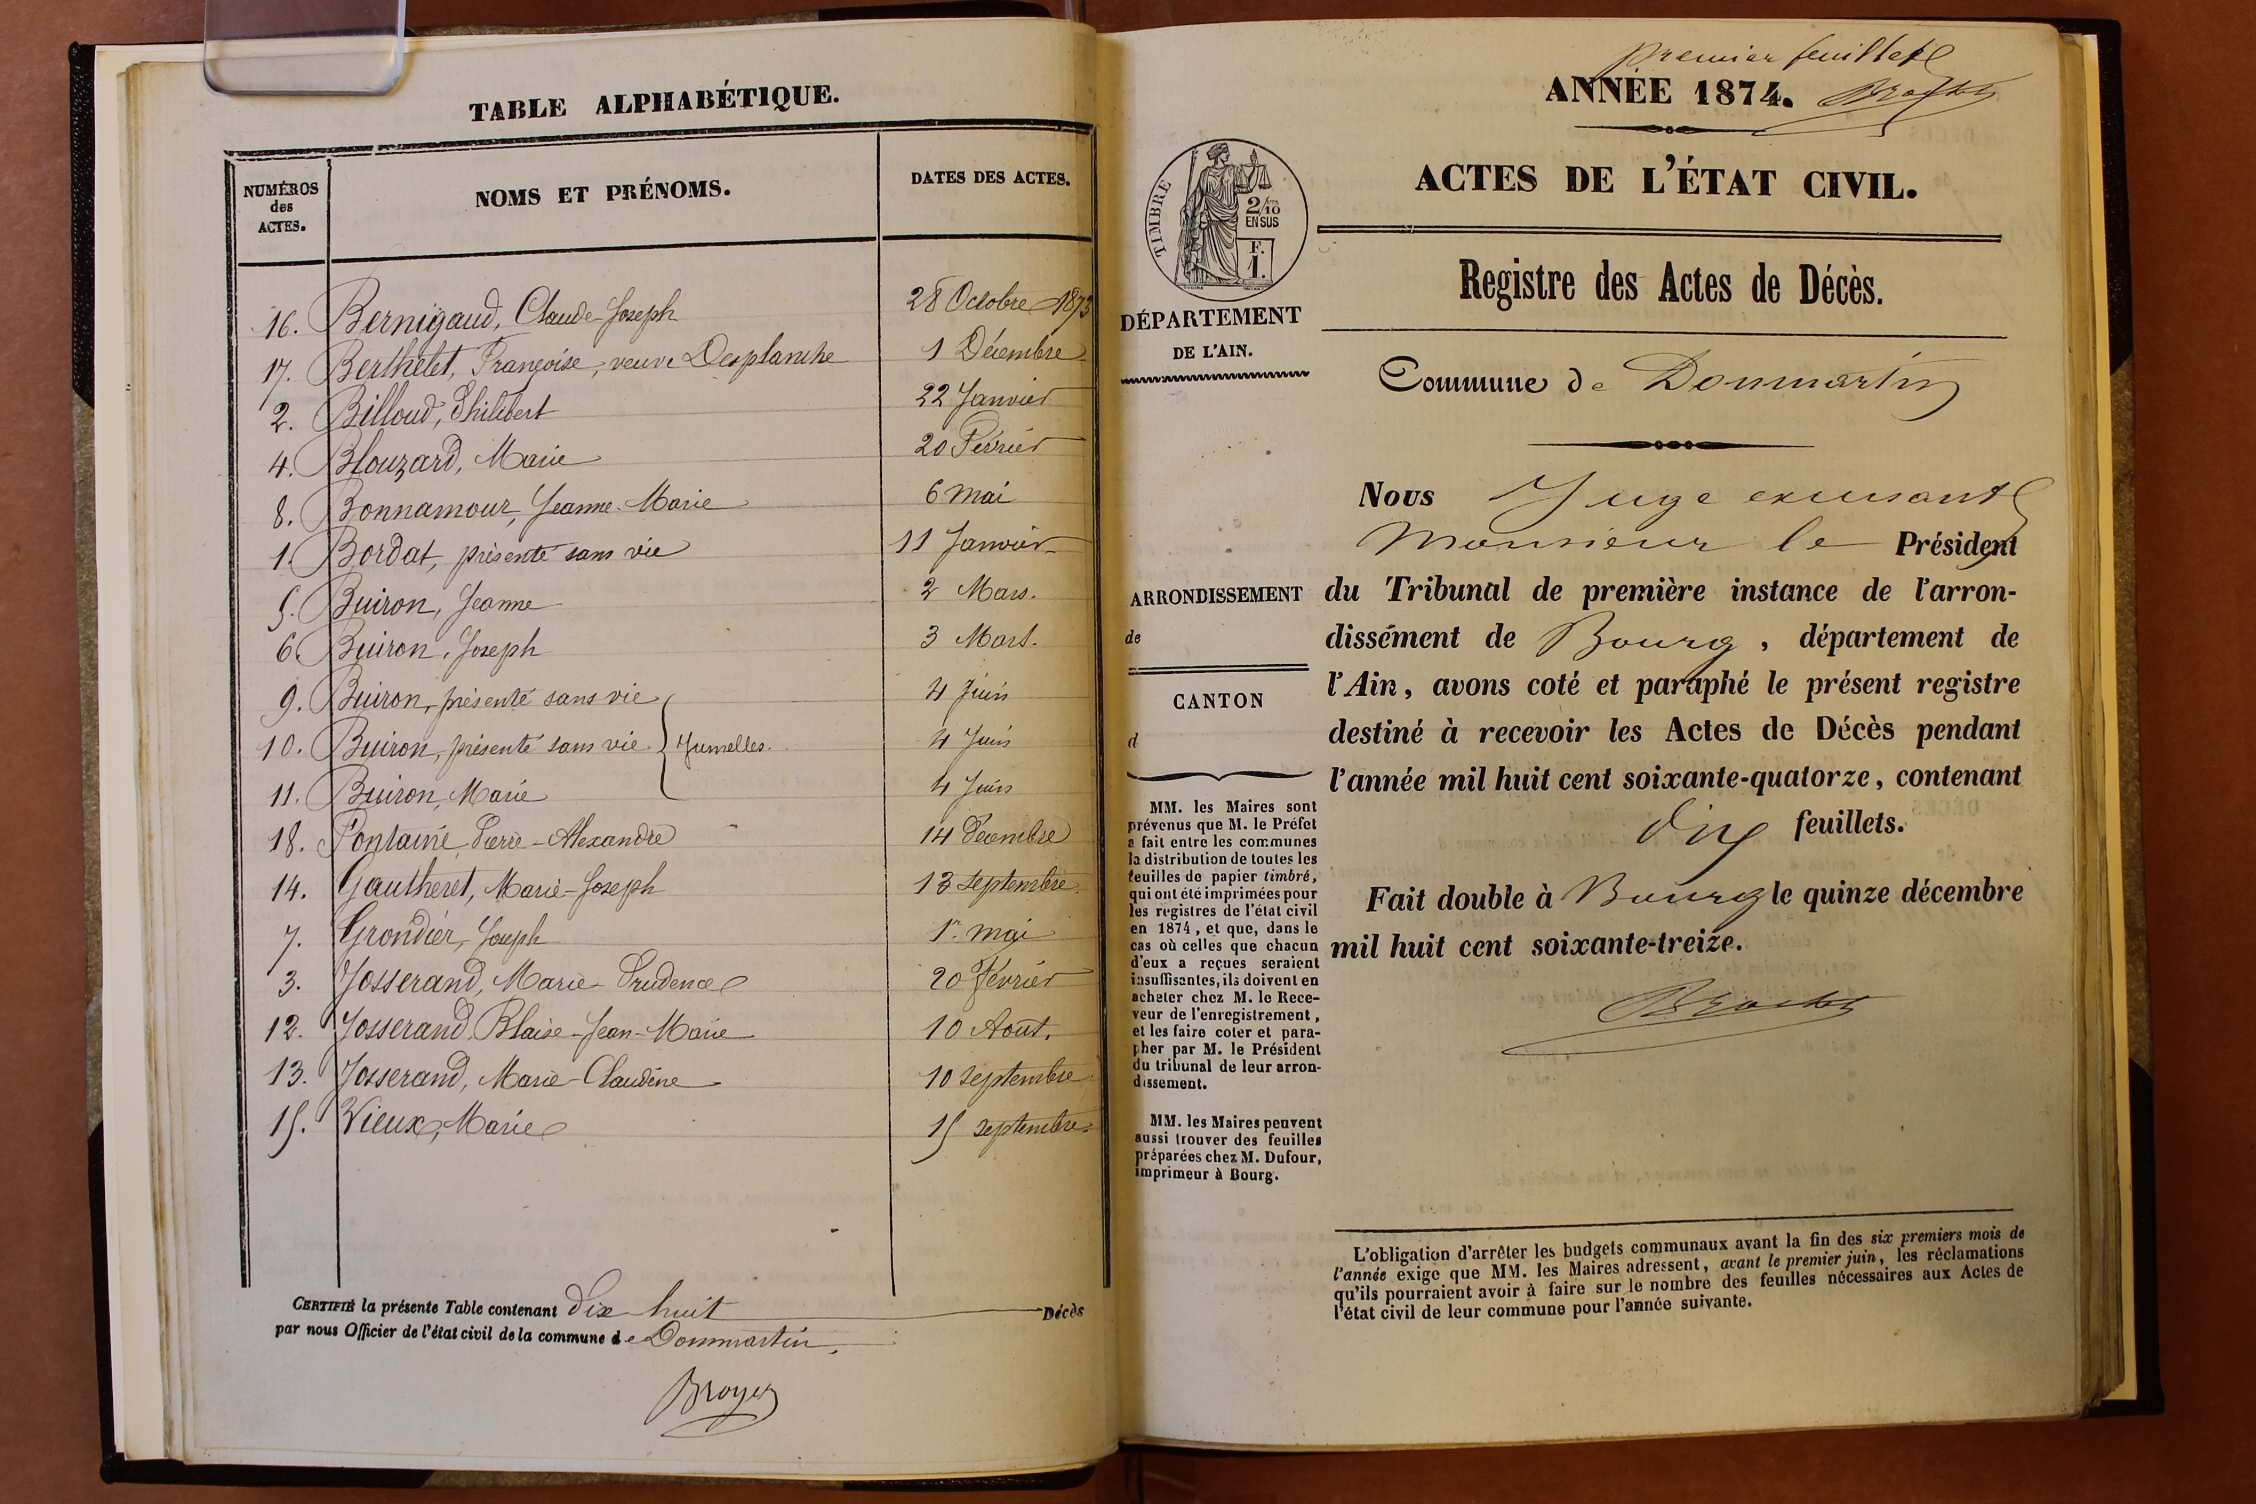 TABLE ALPHABÉTIQUE.
NUMÉROS des ACTES. NOMS ET PRÉNOMS. DATES DES ACTES.
16. Bernigaud, Claude-Joseph 28 Octobre 1873
17. Berthelet, Françoise, veuve Desplanche 1 Décembre
2. Billoud, Philibert 22 Janvier
4. Blouzard, Marie 20 Février
8. Bonnamour, Jeanne-Marie 6 Mai
1. Bordat, présenté sans vie 11 Janvier
5. Buiron, Jeanne 2 Mars.
6. Buiron, Joseph 3 Mars.
9. Buiron, présenté sans vie 4 Juin
10. Buiron, présenté sans vie } Jumelles. 4 Juin
11. Buiron, Marie 4 Juin
18. Fontaine, Pierre-Alexandre 14 Décembre
14. Gautheret, Marie-Joseph 13 septembre
7. Grondier, Joseph 1er mai
3. Josserand, Marie-Prudence 20 Février
12. Josserand, Blaise-Jean-Marie 10 Août.
13. Josserand, Marie-Claudine 10 septembre
15. Vieux, Marie 15 septembre
CERTIFIÉ la présente Table contenant Dix huit Décès
par nous Officier de l'état civil de la commune de Dommartin.
Broyer
premier feuillet
ANNÉE 1874.
ACTES DE L'ÉTAT CIVIL.
TIMBRE
2/10
EN SUS
F.
1.
DÉPARTEMENT
DE L'AIN.
Registre des Actes de Décès.
Commune de Dommartin
ARRONDISSEMENT
de
CANTON
d
Nous Juge excusant
Monsieur le Président
du Tribunal de première instance de l'arron-
dissément de Bourg, département de
l'Ain, avons coté et paraphé le présent registre
destiné à recevoir les Actes de Décès pendant
l'année mil huit cent soixante-quatorze, contenant
dix feuillets.
Fait double à Bourg le quinze décembre
mil huit cent soixante-treize.
MM. les Maires sont
prévenus que M. le Préfet
a fait entre les communes
la distribution de toutes les
feuilles de papier timbré,
qui ont été imprimées pour
les registres de l'état civil
en 1874, et que, dans le
cas où celles que chacun
d'eux a reçues seraient
insuffisantes, ils doivent en
acheter chez M. le Rece-
veur de l'enregistrement,
et les faire coter et para-
pher par M. le Président
du tribunal de leur arron-
dissement.
MM. les Maires peuvent
aussi trouver des feuilles
préparées chez M. Dufour,
imprimeur à Bourg.
L'obligation d'arrêter les budgets communaux avant la fin des six premiers mois de
l'année exige que MM. les Maires adressent, avant le premier juin, les réclamations
qu'ils pourraient avoir à faire sur le nombre des feuilles nécessaires aux Actes de
l'état civil de leur commune pour l'année suivante.